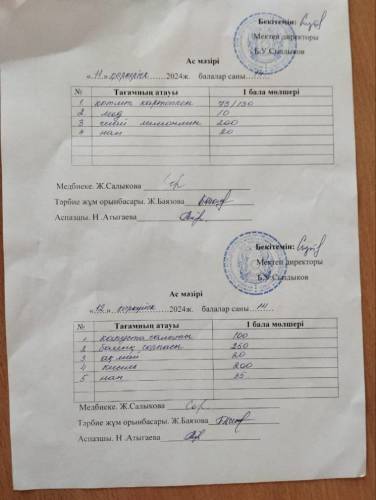 Бекітемін:
Мектеп директоры
Б.У Сыздыков
Ас мәзірі
«11» қыркүйек 2024ж. балалар саны 14
№ Тағамның атауы 1 бала мөлшері
1 котлет картоппен 75/130
2 мёд 10
3 чай лимонмен 200
4 нан 20
Медбике. Ж.Салыкова
Тәрбие жұм орынбасары. Ж.Баязова
Аспазшы. Н.Атыгаева
Бекітемін:
Мектеп директоры
Б.У Сыздыков
Ас мәзірі
«12» қыркүйек 2024ж. балалар саны 14
№ Тағамның атауы 1 бала мөлшері
1 капуста салаты 100
2 250
3 ақ май 20
4 кисель 200
5 нан 25
Медбике. Ж.Салыкова
Тәрбие жұм орынбасары. Ж.Баязова
Аспазшы. Н.Атыгаева